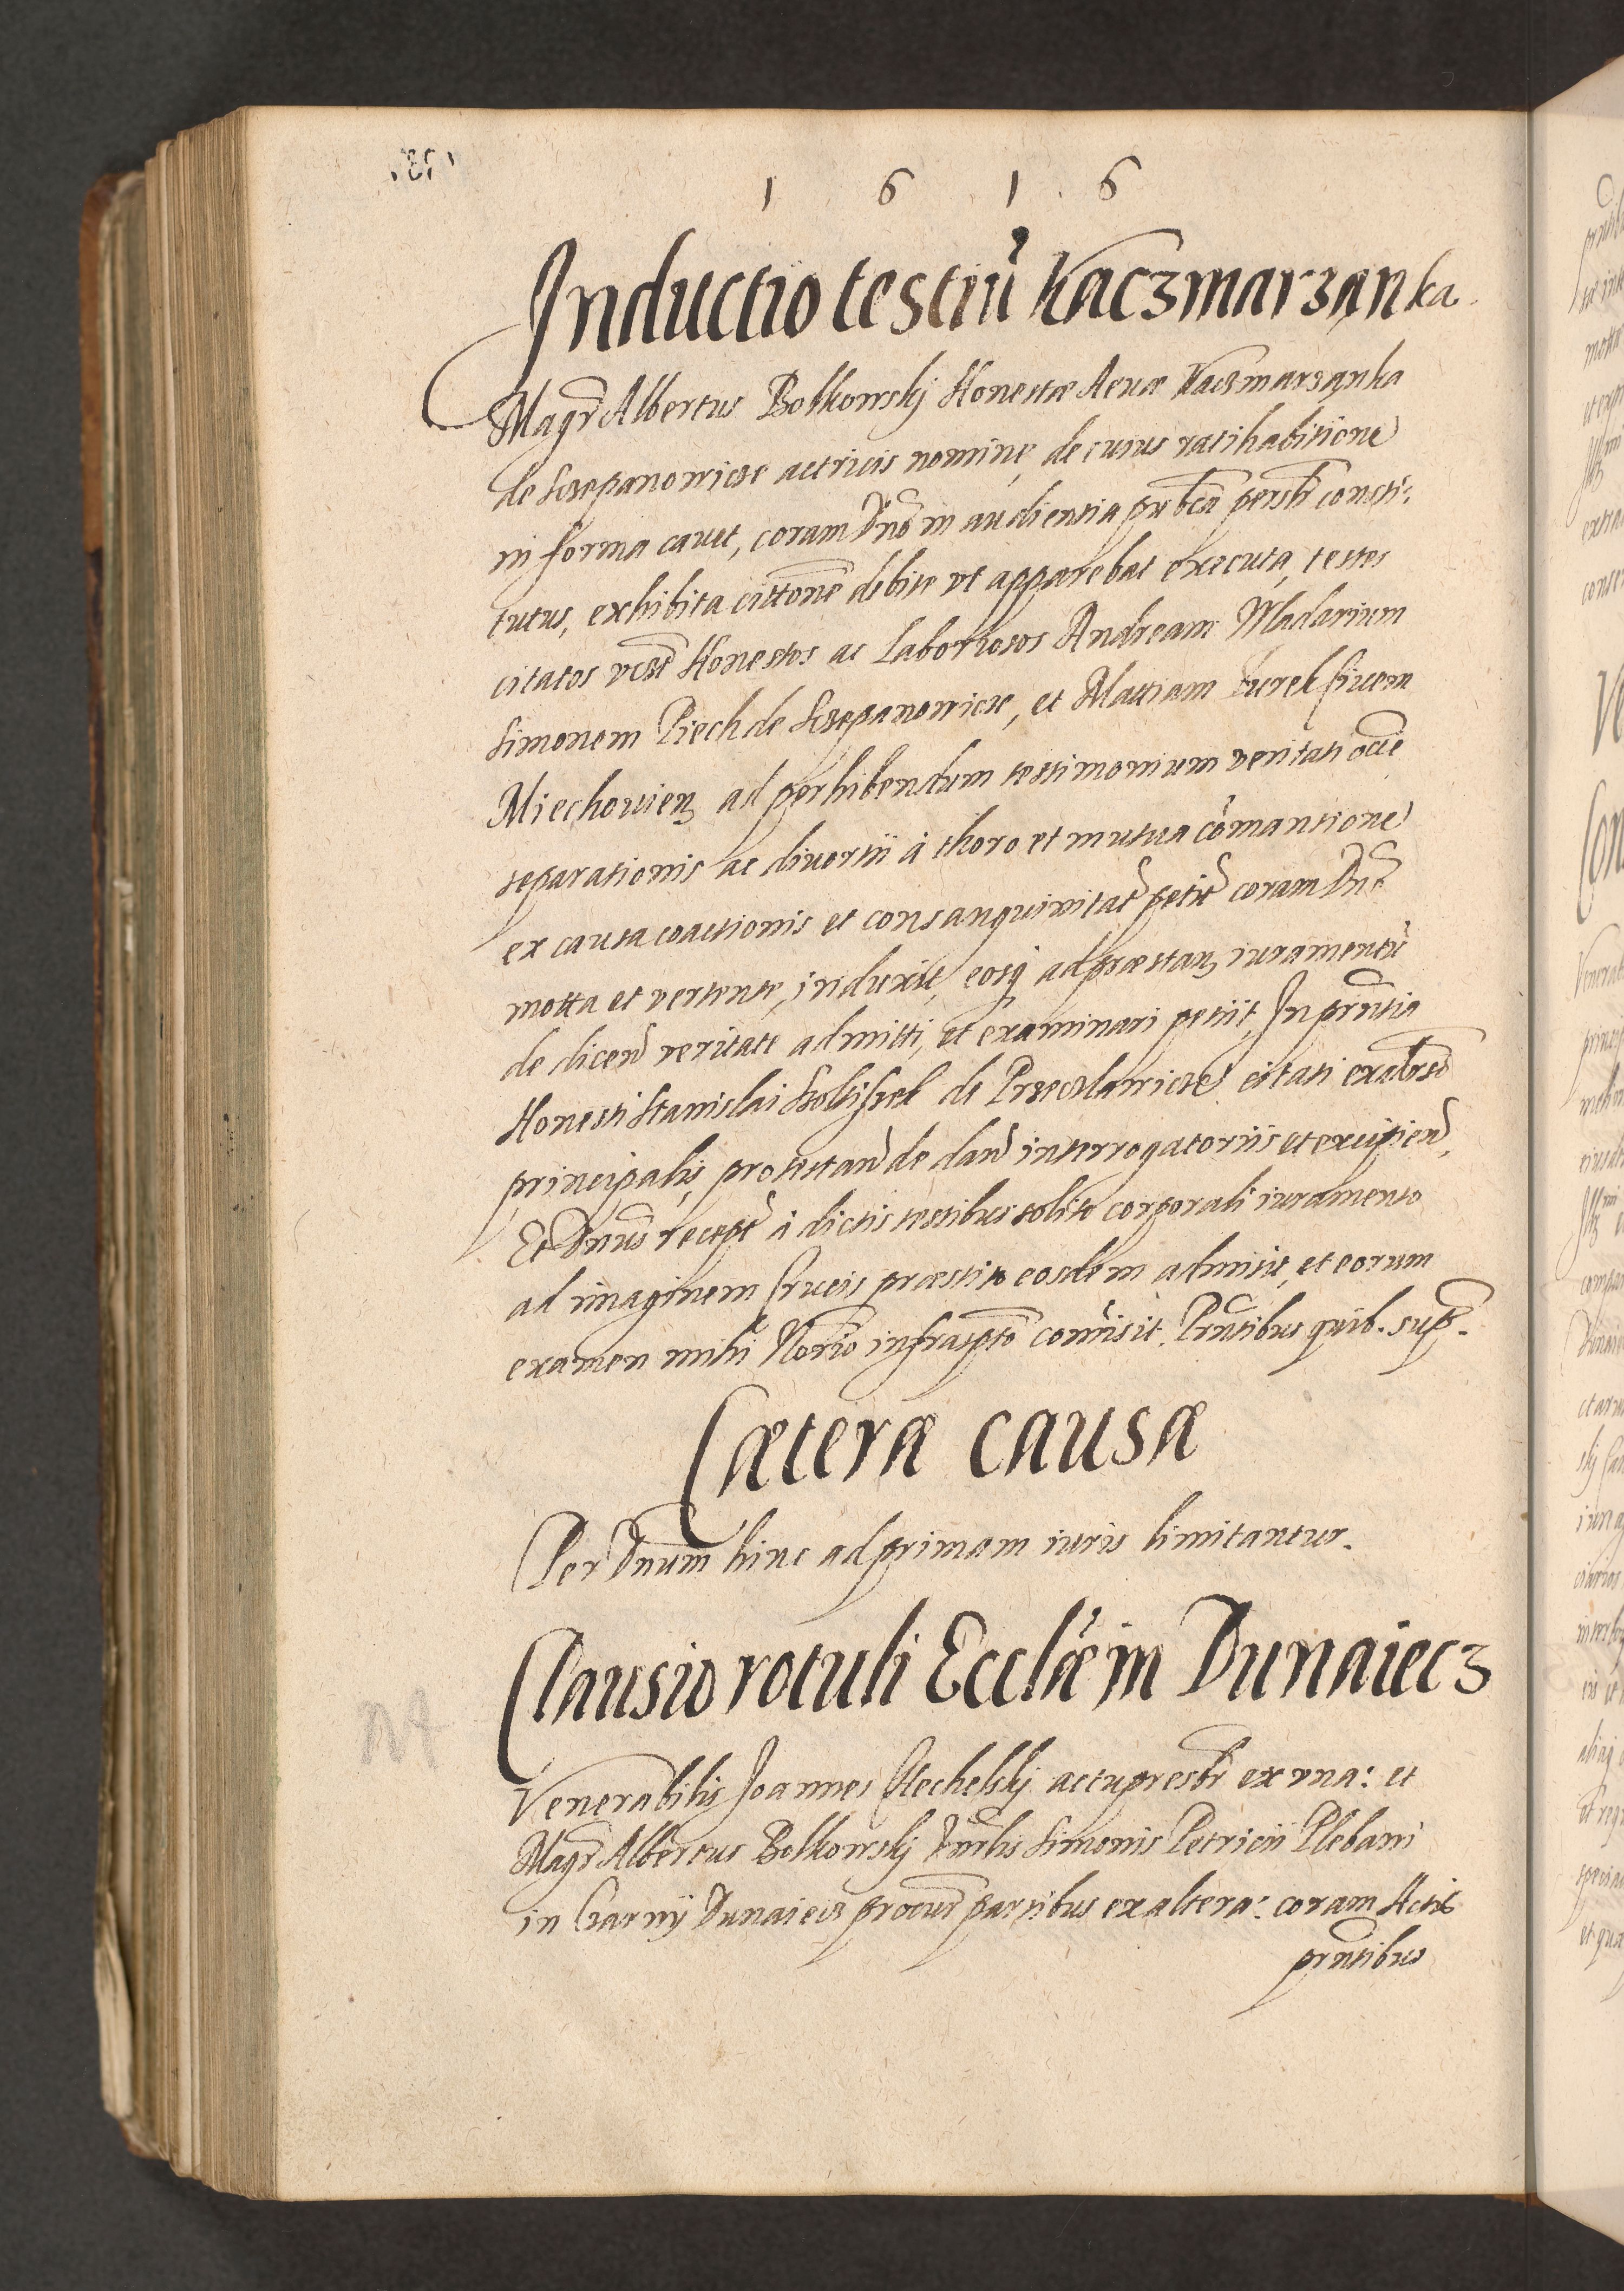 1 6 1 6
Inductio testiũ Kaczmarzanka
Magr̃ Albertus Bolkowskj Honestæ Aeuæ Kaczmarzanka
de Sczepanowicze actricis nomine, de cuius ratihabitione
in forma cauet, coram Dño in audientia pubca persł consti:
tutus, exhibita citõne debite vt apparebat executa, testes
citatos vcłt Honestos ac Laboriosos Andream Wladarium
Simonem Piech de Sczepanowicze, et Mattiam Turek Ciuem
Miechouien̨ ad perhibendum testimonium veritati occne
separationis ac diuortii à thoro et mutua cõmansione
ex causa coactionis et consanguinitat̃ petit̃ coram Dño
motta et vertente, induxit, eosq̃ ad præstan̨ iuramentũ
de dicen̄ veritate admitti, et examinari petiit, In prñtia
Honesti Stanislai de Przecslawicze citati ex aduerso
principalis, protestan̄ de dan̄ interrogatoriis et excipien̄,
Et Dnũs recept̃ à dictis testibus solito corporali iuramento
ad imaginem Crucis præstito eosdem admisit, et eorum
examen mihi Noriõ infrasptõ comisit. Prñtibus quib. sup̃.
Cæteræ causæ
Per Dnum hinc ad primam iuris limitantur.
Clausio rotuli Ecclæ in Dunaiecz
Venerabilis Joannes Clechelskj actu presbr̃ ex vna: et
Magr̃ Albertus Bolkowskj Vnrlis Simonis Petricii Plebani
in Czarnÿ Dunaiecz procur̃ partibus ex altera: coram Actis
prñtibus